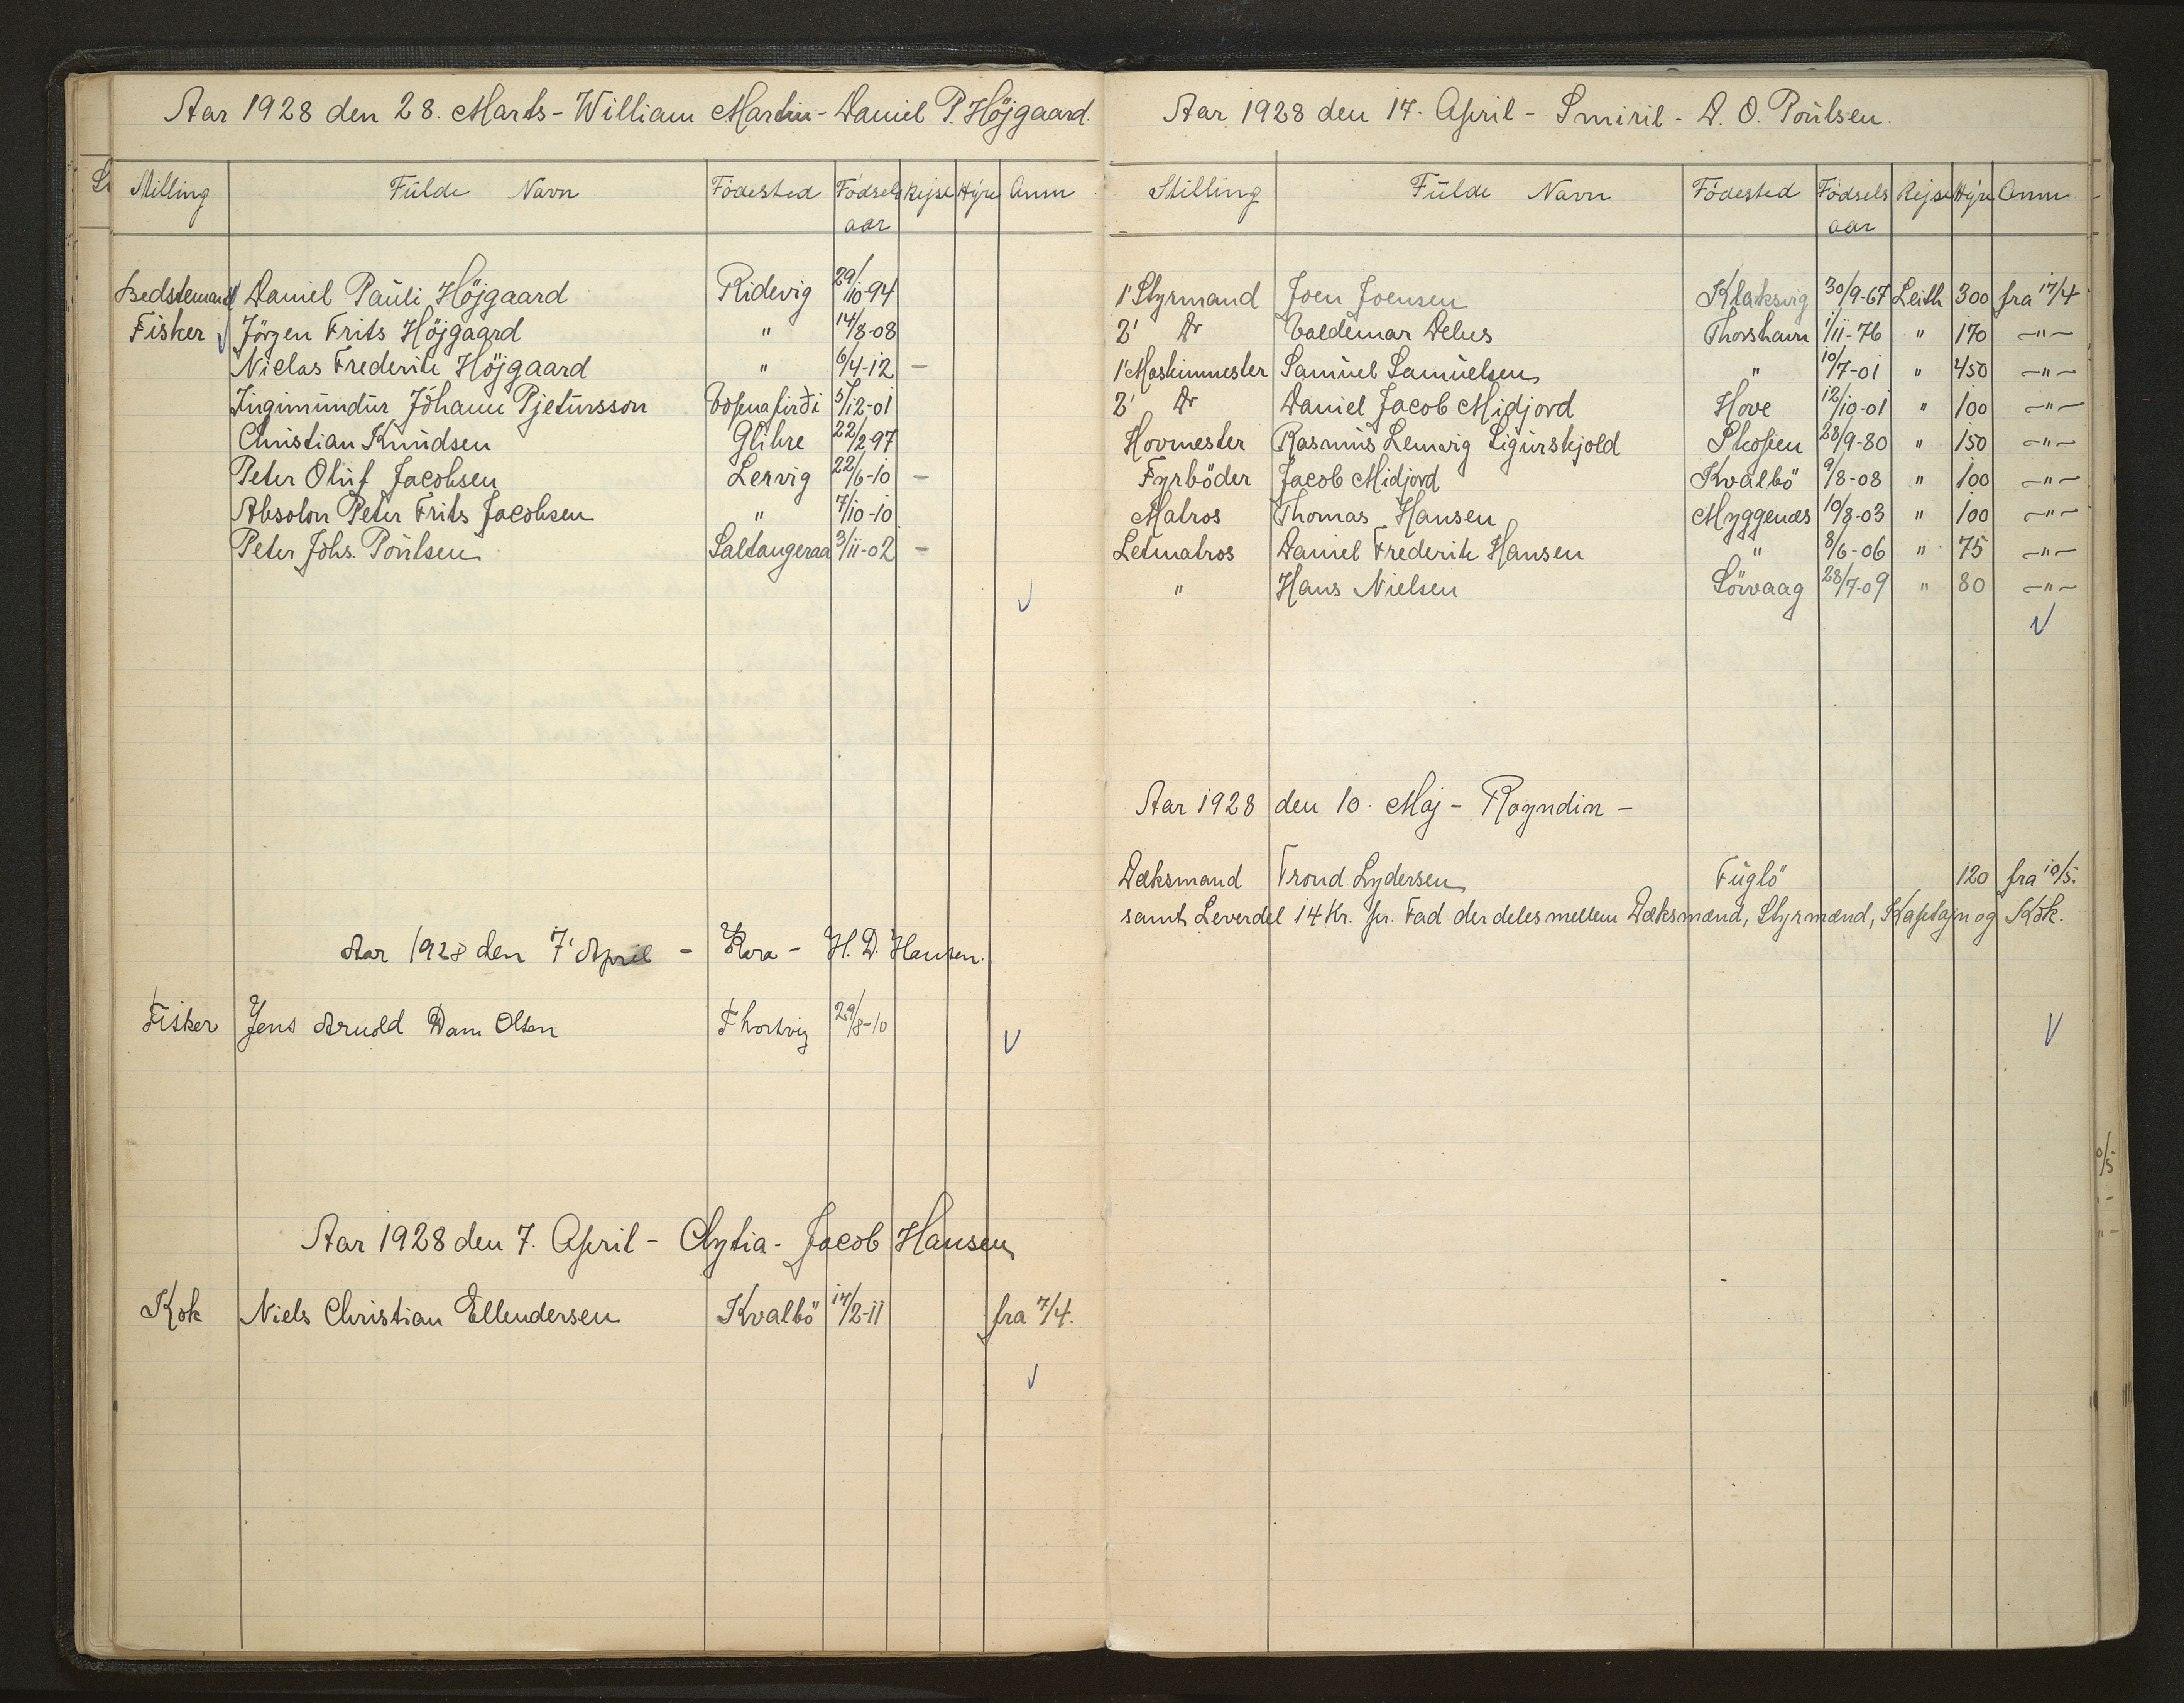 Aar 1928 den 28. Marts - William Martin - Daniel P. Höjgaard.
Stilling Fulde Navn Födested Födsels Rejse Hyre Anm
aar
Bedstemand Daniel Pauli Höjgaard Ridevig 29/10-94
Fisker Jörgen Frits Höjgaard " 14/8-08
Niclas Frederik Höjgaard " 6/4-12 -
Jngimundur Jóhann Pjetursson Vopnafirði 5/12-01
Christian Knudsen Glibre 22/2-97
Peter Oluf Jacobsen Lervig 22/6-10 -
Absolon Peter Frits Jacobsen " 7/10-10
Peter Johs. Poulsen Saltangeraa 3/11-02 -
Aar 1928 den 7' April - Kora - H. D. Hansen.
Fisker Jens Arnold Dam Olsen Thorsvig 29/8-10
Aar 1928 den 7. April - Clytia - Jacob Hansen
Kok Niels Christian Ellendersen Kvalbö 17/2-11 fra 7/4.
Aar 1928 den 17. April - Smiril - D. O. Poulsen.
Stilling Fulde Navn Födested Födsels Rejse Hyre Anm
aar
1' Styrmand Joen Joensen Klaksvig 30/9-67 Leith 300 fra 17/4
2' Do Valdemar Debes Thorshavn 1/11-76 " 170 -"-
1' Maskinmester Samuel Samuelsen " 10/7-01 " 450 -"-
2' Do Daniel Jacob Midjord Hove 12/10-01 " 100 -"-
Hovmester Rasmus Lemvig Sigurskjold Skopen 28/9-80 " 150 -"-
Fyrböder Jacob Midjord Kvalbö 9/8-08 " 100 -"-
Matros Thomas Hansen Myggenæs 10/8-03 " 100 -"-
Letmatros Daniel Frederik Hansen " 8/6-06 " 75 -"-
" Hans Nielsen Sörvaag 28/7-09 " 80 -"-
Aar 1928 den 10. Maj - Royndin -
Dæksmand Trond Lydersen Fuglö 120 fra 10/5.
samt Leverdel 14 Kr. pr. Fad der deles mellem Dæksmænd, Styrmænd, Kaptajn og Kok.